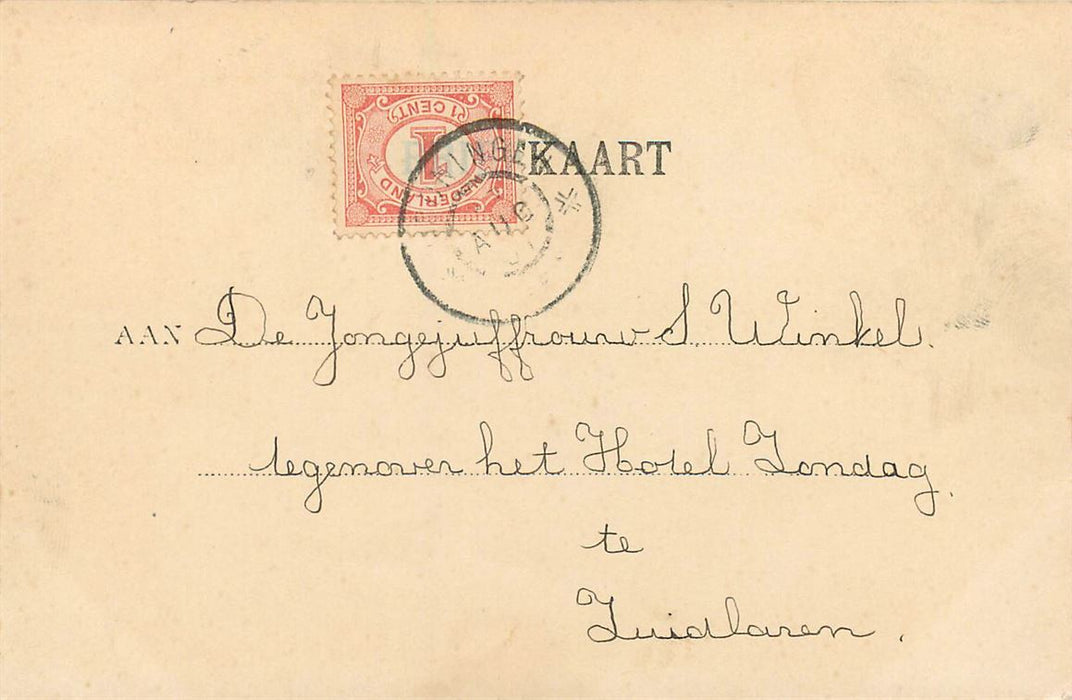 1 CENT
1
NEDERLAND
KAART
AUG
AAN De Jongejuffrouw S. Winkel.
tegenover het Hotel Zondag.
te
Zuidlaren.